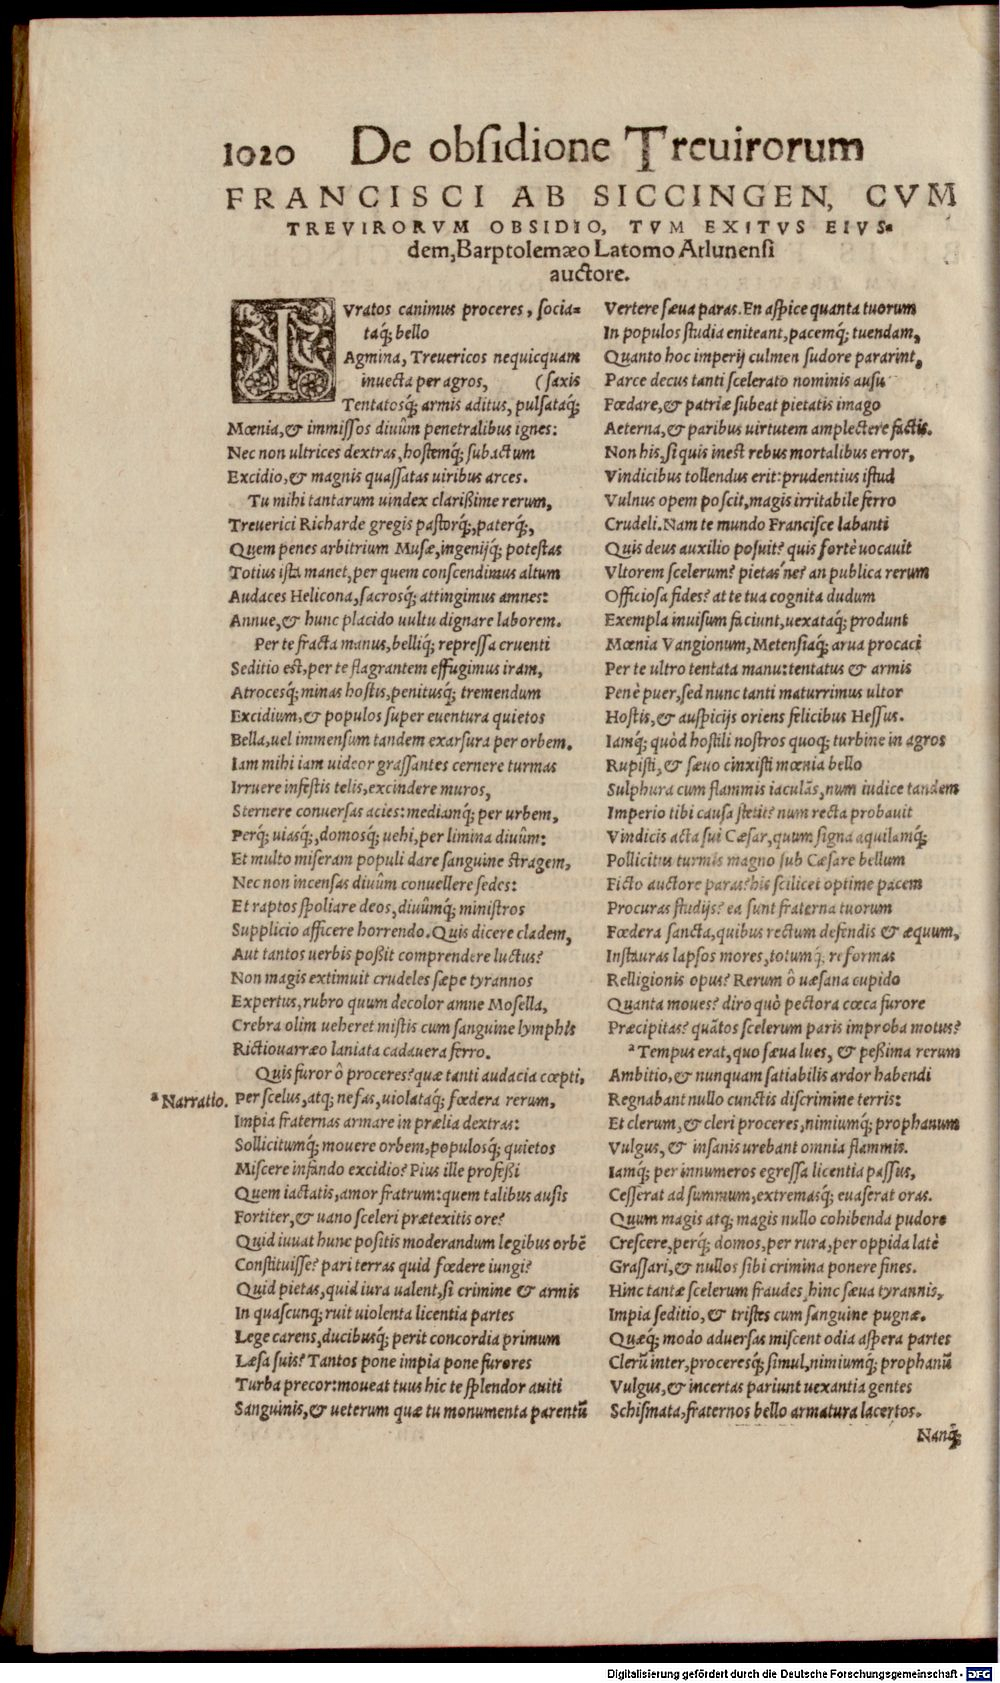 1020 De obsidione Treuirorum
FRANCISCI AB SICCINGEN, CVM
TREVIRORVM OBSIDIO, TVM EXITVS EIVS=
dem, Barptolemæo Latomo Arlunensi
auctore.
IVratos canimus proceres, socia=
taq́; bello
Agmina, Treuericos nequicquam
inuecta per agros, (saxis
Tentatosq́; armis aditus, pulsataq́;
Mœnia, & immissos diuûm penetralibus ignes:
Nec non ultrices dextras, hostemq́; subactum
Excidio, & magnis quassatas uiribus arces.
Tu mihi tantarum uindex clarißime rerum,
Treuerici Richarde gregis pastorq́;, paterq́;,
Quem penes arbitrium Musæ, ingenijq́; potestas
Totius ista manet, per quem conscendimus altum
Audaces Helicona, sacrosq́; attingimus amnes:
Annue, & hunc placido uultu dignare laborem.
Per te fracta manus, belliq́; repressa cruenti
Seditio est, per te flagrantem effugimus iram,
Atrocesq́; minas hostis, penitusq́; tremendum
Excidium, & populos super euentura quietos
Bella, uel immensum tandem exarsura per orbem.
Iam mihi iam uideor grassantes cernere turmas
Irruere infestis telis, excindere muros,
Sternere conuersas acies: mediamq́; per urbem,
Perq́; uiasq́;, domosq́; uehi, per limina diuûm:
Et multo miseram populi dare sanguine stragem,
Nec non incensas diuûm conuellere sedes:
Et raptos spoliare deos, diuûmq́; ministros
Supplicio afficere horrendo. Quis dicere cladem,
Aut tantos uerbis poßit comprendere luctus?
Non magis extimuit crudeles sæpe tyrannos
Expertus, rubro quum decolor amne Mosella,
Crebra olim ueheret mistis cum sanguine lymphis
Rictiouarræo laniata cadauera ferro.
Quis furor ô proceres? quæ tanti audacia cœpti,
ª Narratio.
Per scelus, atq; nefas, uiolataq́; fœdera rerum,
Impia fraternas armare in prælia dextras:
Sollicitumq́; mouere orbem, populosq́; quietos
Miscere infando excidio? Pius ille profeßi
Quem iactatis, amor fratrum: quem talibus ausis
Fortiter, & uano sceleri prætexitis ore?
Quid iuuat hunc positis moderandum legibus orbẽ
Constituisse? pari terras quid fœdere iungi?
Quid pietas, quid iura ualent, si crimine & armis
In quascunq; ruit uiolenta licentia partes
Lege carens, ducibusq́; perit concordia primum
Læsa suis? Tantos pone impia pone furores
Turba precor: moueat tuus hic te splendor auiti
Sanguinis, & ueterum quæ tu monumenta parentũ
Vertere sæua paras. En aspice quanta tuorum
In populos studia eniteant, pacemq́; tuendam,
Quanto hoc imperij culmen sudore pararint,
Parce decus tanti scelerato nominis ausu
Fœdare, & patriæ subeat pietatis imago
Aeterna, & paribus uirtutem amplectere factis.
Non his, si quis inest rebus mortalibus error,
Vindicibus tollendus erit: prudentius istud
Vulnus opem poscit, magis irritabile ferro
Crudeli. Nam te mundo Francisce labanti
Quis deus auxilio posuit? quis fortè uocauit
Vltorem scelerum? pietas'ne? an publica rerum
Officiosa fides? at te tua cognita dudum
Exempla inuisum faciunt, uexataq́; produnt
Mœnia Vangionum, Metensiaq́; arua procaci
Per te ultro tentata manu: tentatus & armis
Penè puer, sed nunc tanti maturrimus ultor
Hostis, & auspicijs oriens felicibus Hessus.
Iamq́; quòd hostili nostros quoq; turbine in agros
Rupisti, & sæuo cinxisti mœnia bello
Sulphura cum flammis iaculãs, num iudice tandem
Imperio tibi causa stetit? num recta probauit
Vindicis acta sui Cæsar, quum signa aquilamq́;
Pollicitus turmis magno sub Cæsare bellum
Ficto auctore paras? his scilicet optime pacem
Procuras studijs? ea sunt fraterna tuorum
Fœdera sancta, quibus rectum defendis & æquum,
Instauras lapsos mores, totumq́; reformas
Relligionis opus? Rerum ô uæsana cupido
Quanta moues? diro quò pectora cœca furore
Præcipitas? quãtos scelerum paris improba motus?
ª Tempus erat, quo sæua lues, & peßima rerum
Ambitio, & nunquam satiabilis ardor habendi
Regnabant nullo cunctis discrimine terris:
Et clerum, & cleri proceres, nimiumq́; prophanum
Vulgus, & insanis urebant omnia flammis.
Iamq́; per innumeros egressa licentia passus,
Cesserat ad summum, extremasq́; euaserat oras.
Quum magis atq; magis nullo cohibenda pudore
Crescere, perq́; domos, per rura, per oppida latè
Grassari, & nullos sibi crimina ponere fines.
Hinc tantæ scelerum fraudes, hinc sæua tyrannis,
Impia seditio, & tristes cum sanguine pugnæ.
Quæq́; modo aduersas miscent odia aspera partes
Clerũ inter, proceresq́; simul, nimiumq́; prophanũ
Vulgus, & incertas pariunt uexantia gentes
Schismata, fraternos bello armatura lacertos.
Nanq́;
Digitalisierung gefördert durch die Deutsche Forschungsgemeinschaft - DFG